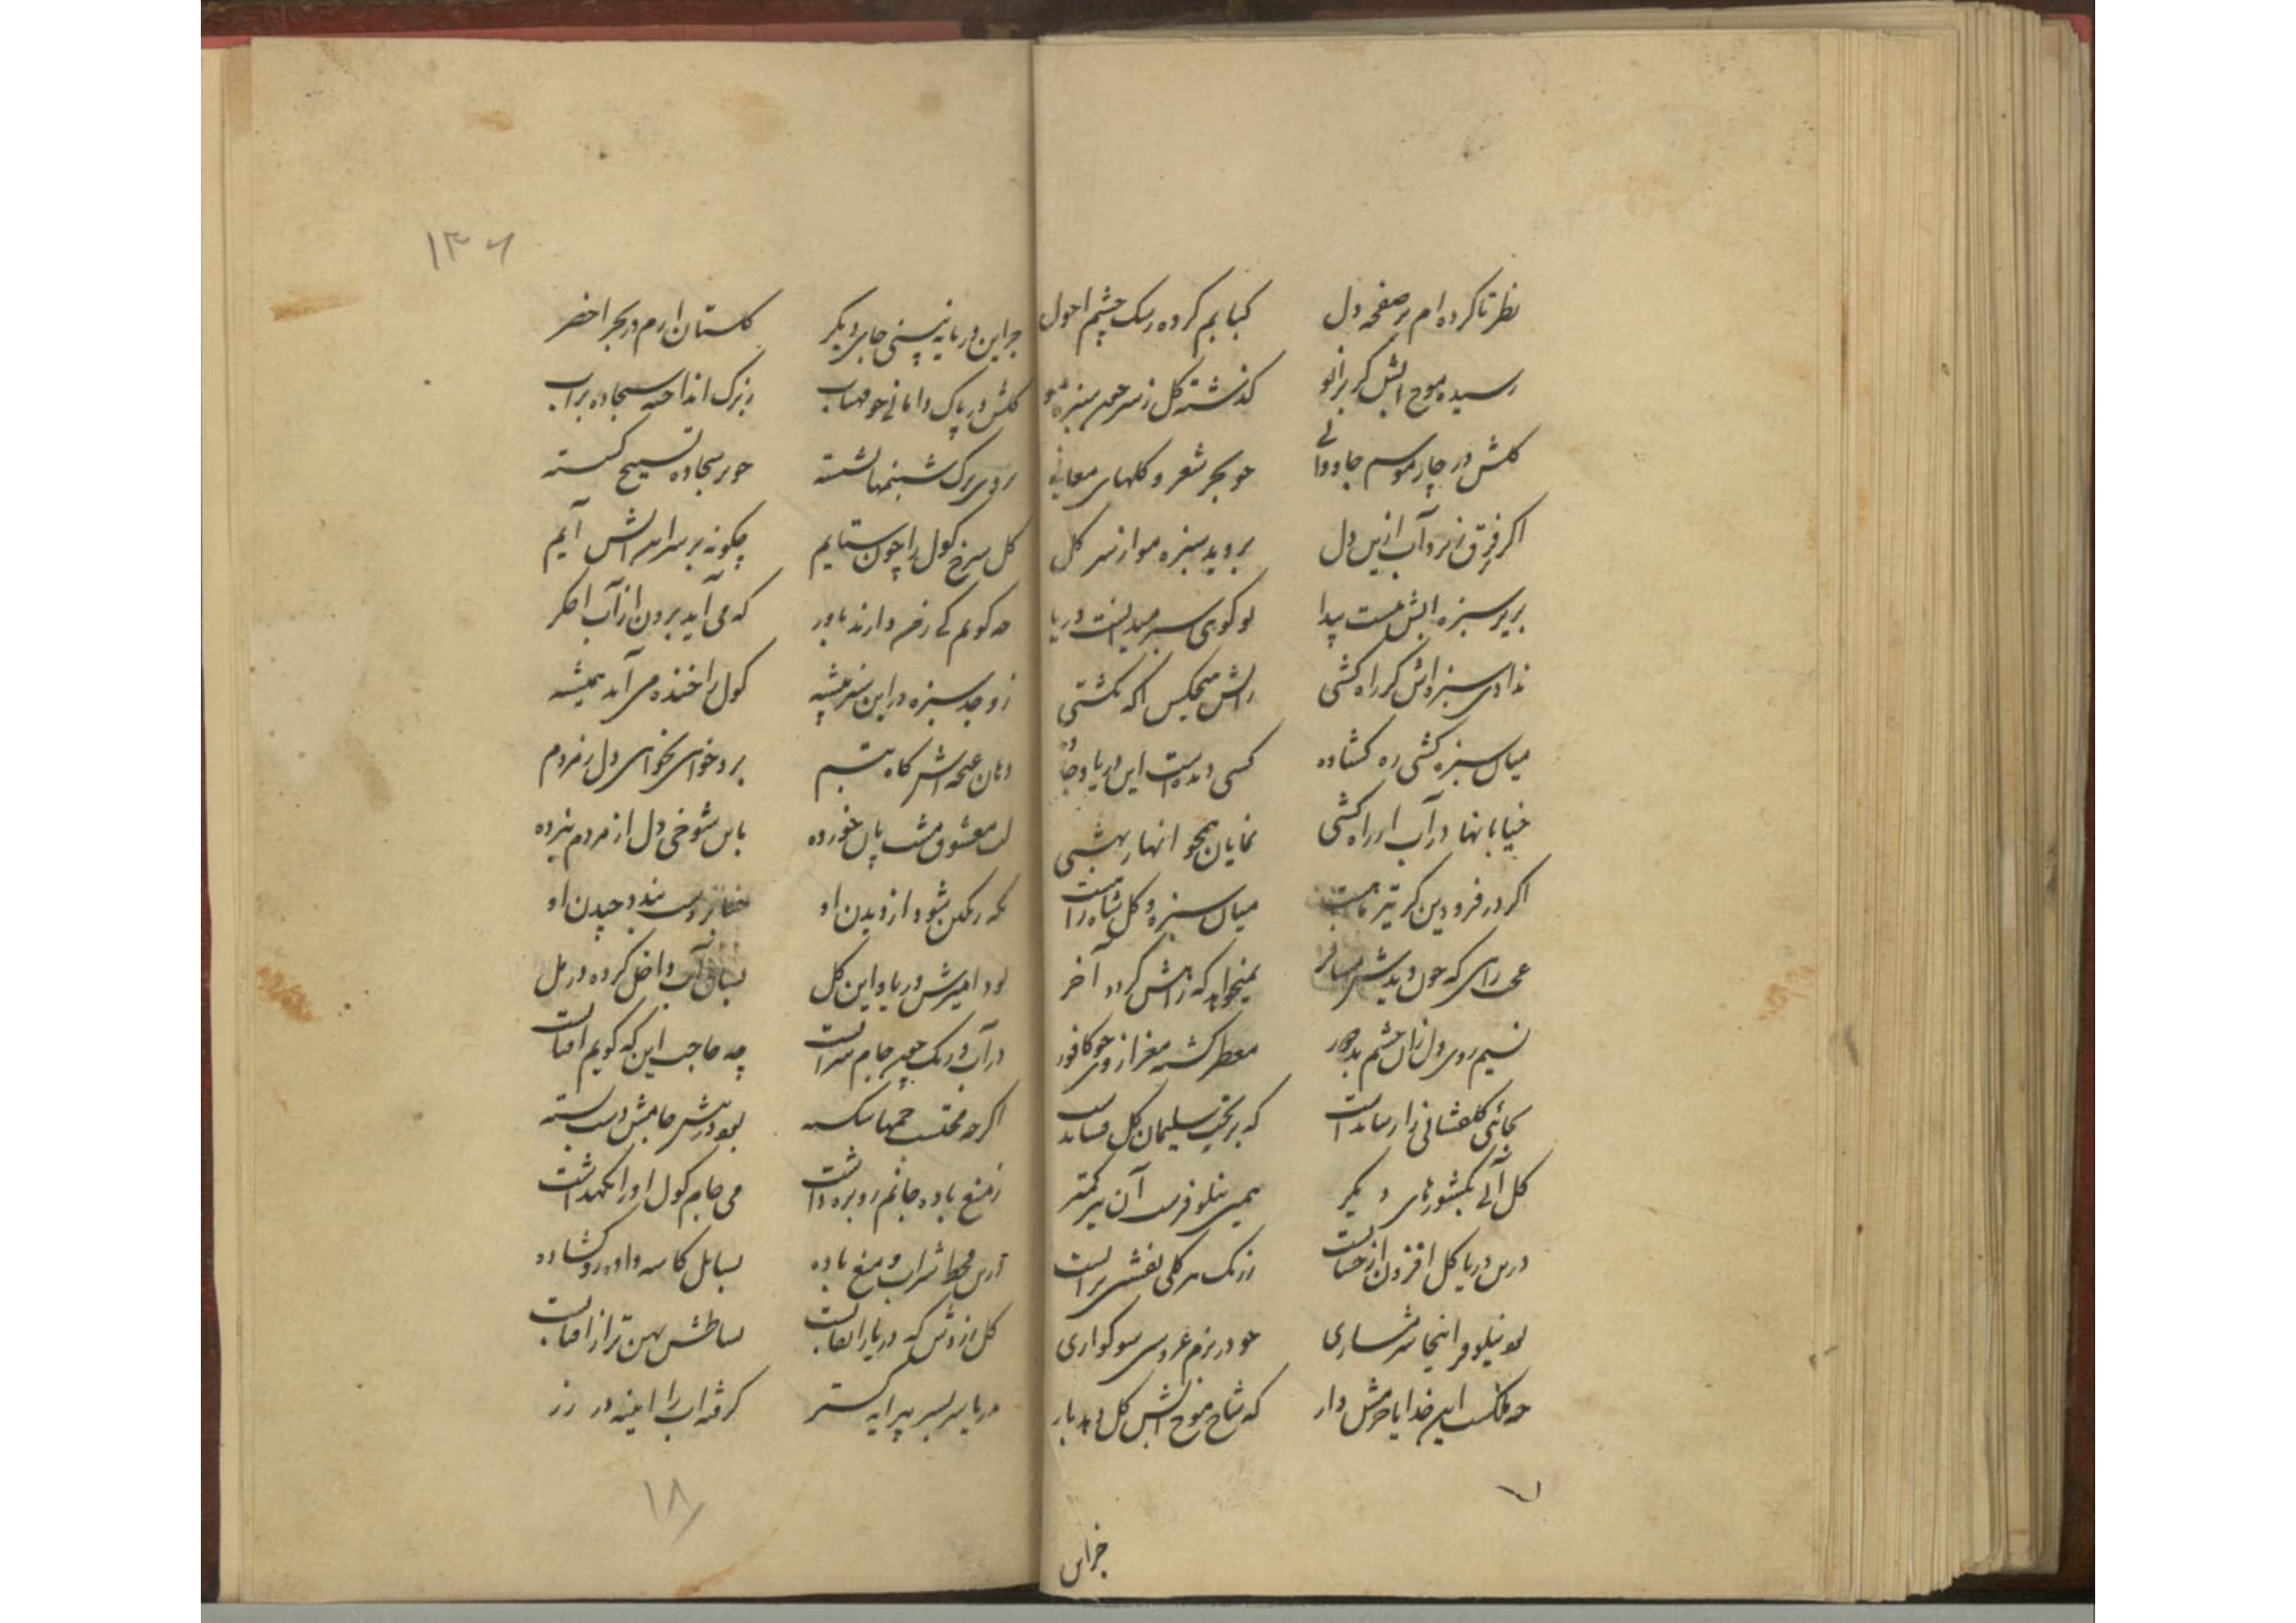 نظر تا کرده ام بر صفحه دل کبابم کرده رشک چشم احول
رسیده موج آبش گر بزانو گذشته گل ز سر سبزه
گلش در چار موسم جاودانی چو بحر شعر و گلهای معانی
اگر فرق نرود آب ازین دل بروید سبزه مو از سر گل
بزیر سبزه آبش هست پیدا تو گوئی سبز میدانست دریا
ندادی سبزه اش گر راه کشتی بر آبش هیچکس آگه نگشتی
میان سبزه کشتی ره گشاده کسی دیده است این دریا و جاده
خیابانها در آب از راه کشتی نمایان همچو انهار بهشتی
اگر در فرودین گر تیر ماهست میان سبزه و گل شاه راهست
عجب راهی که چون دیدش مسافر نمیخواهد که راهش گردد آخر
نسیم روی دل زان چشم بد دور معطر گشته مغز از وی چو کافور
بجائی گلفشانی را رساندست که بر تخت سلیمان گل فشاندست
گل آبی بکشورهای دیگر همین نیلوفرست آن نیز کمتر
درین دریا گل افزون از حسابست ز رنگ هر گلی نقشی بر آبست
بود نیلوفر اینجا شرمساری چو در بزم عروسی سوگواری
چه ملکست این خدایا خرمش دار که شاخ موج آبش گل دهد بار
جز این
۱۳۶
جز این دریا نه بینی جای دیگر گلستان ارم در بحر اخضر
گلش در پاک دامانی چو مهتاب ز برگ انداخته سجاده بر آب
بروی برگ شبنمها نشسته چو بر سجاده تسبیح گسسته
گل سرخ کول را چون ستایم چگونه بر سر آتش آیم
چه گویم کی ز من دارند باور که می آید برون از آب اخگر
ز وجد سبزه در این سبز بیشه کول را خنده می آید همیشه
دهان غنچه اش گاه تبسم برد خواهی نخواهی دل ز مردم
لب معشوق مشت پان خورده باین شوخی دل از مردم نبرده
نگه رنگین شود از دیدن او حنا بر دست بندد چیدن او
بود آمیزش دریا و این گل بسان آب داخل کرده در مل
در آب و رنگ چون جام شرابست چه حاجت این که گویم آفتابست
اگرچه محتسب خمها شکسته بود در پیش جامش دست بسته
ز منع باده جانم رو بره داشت می جام کول او را نگهداشت
درین قحط شراب و منع باده بسایل کاسه داده رو گشاده
گل زردش که دریا را نقابست بساطش پهن تر از آفتابست
بدریا سر بسر پیرایه گستر گرفته آب را آیینه در زر
۱۸